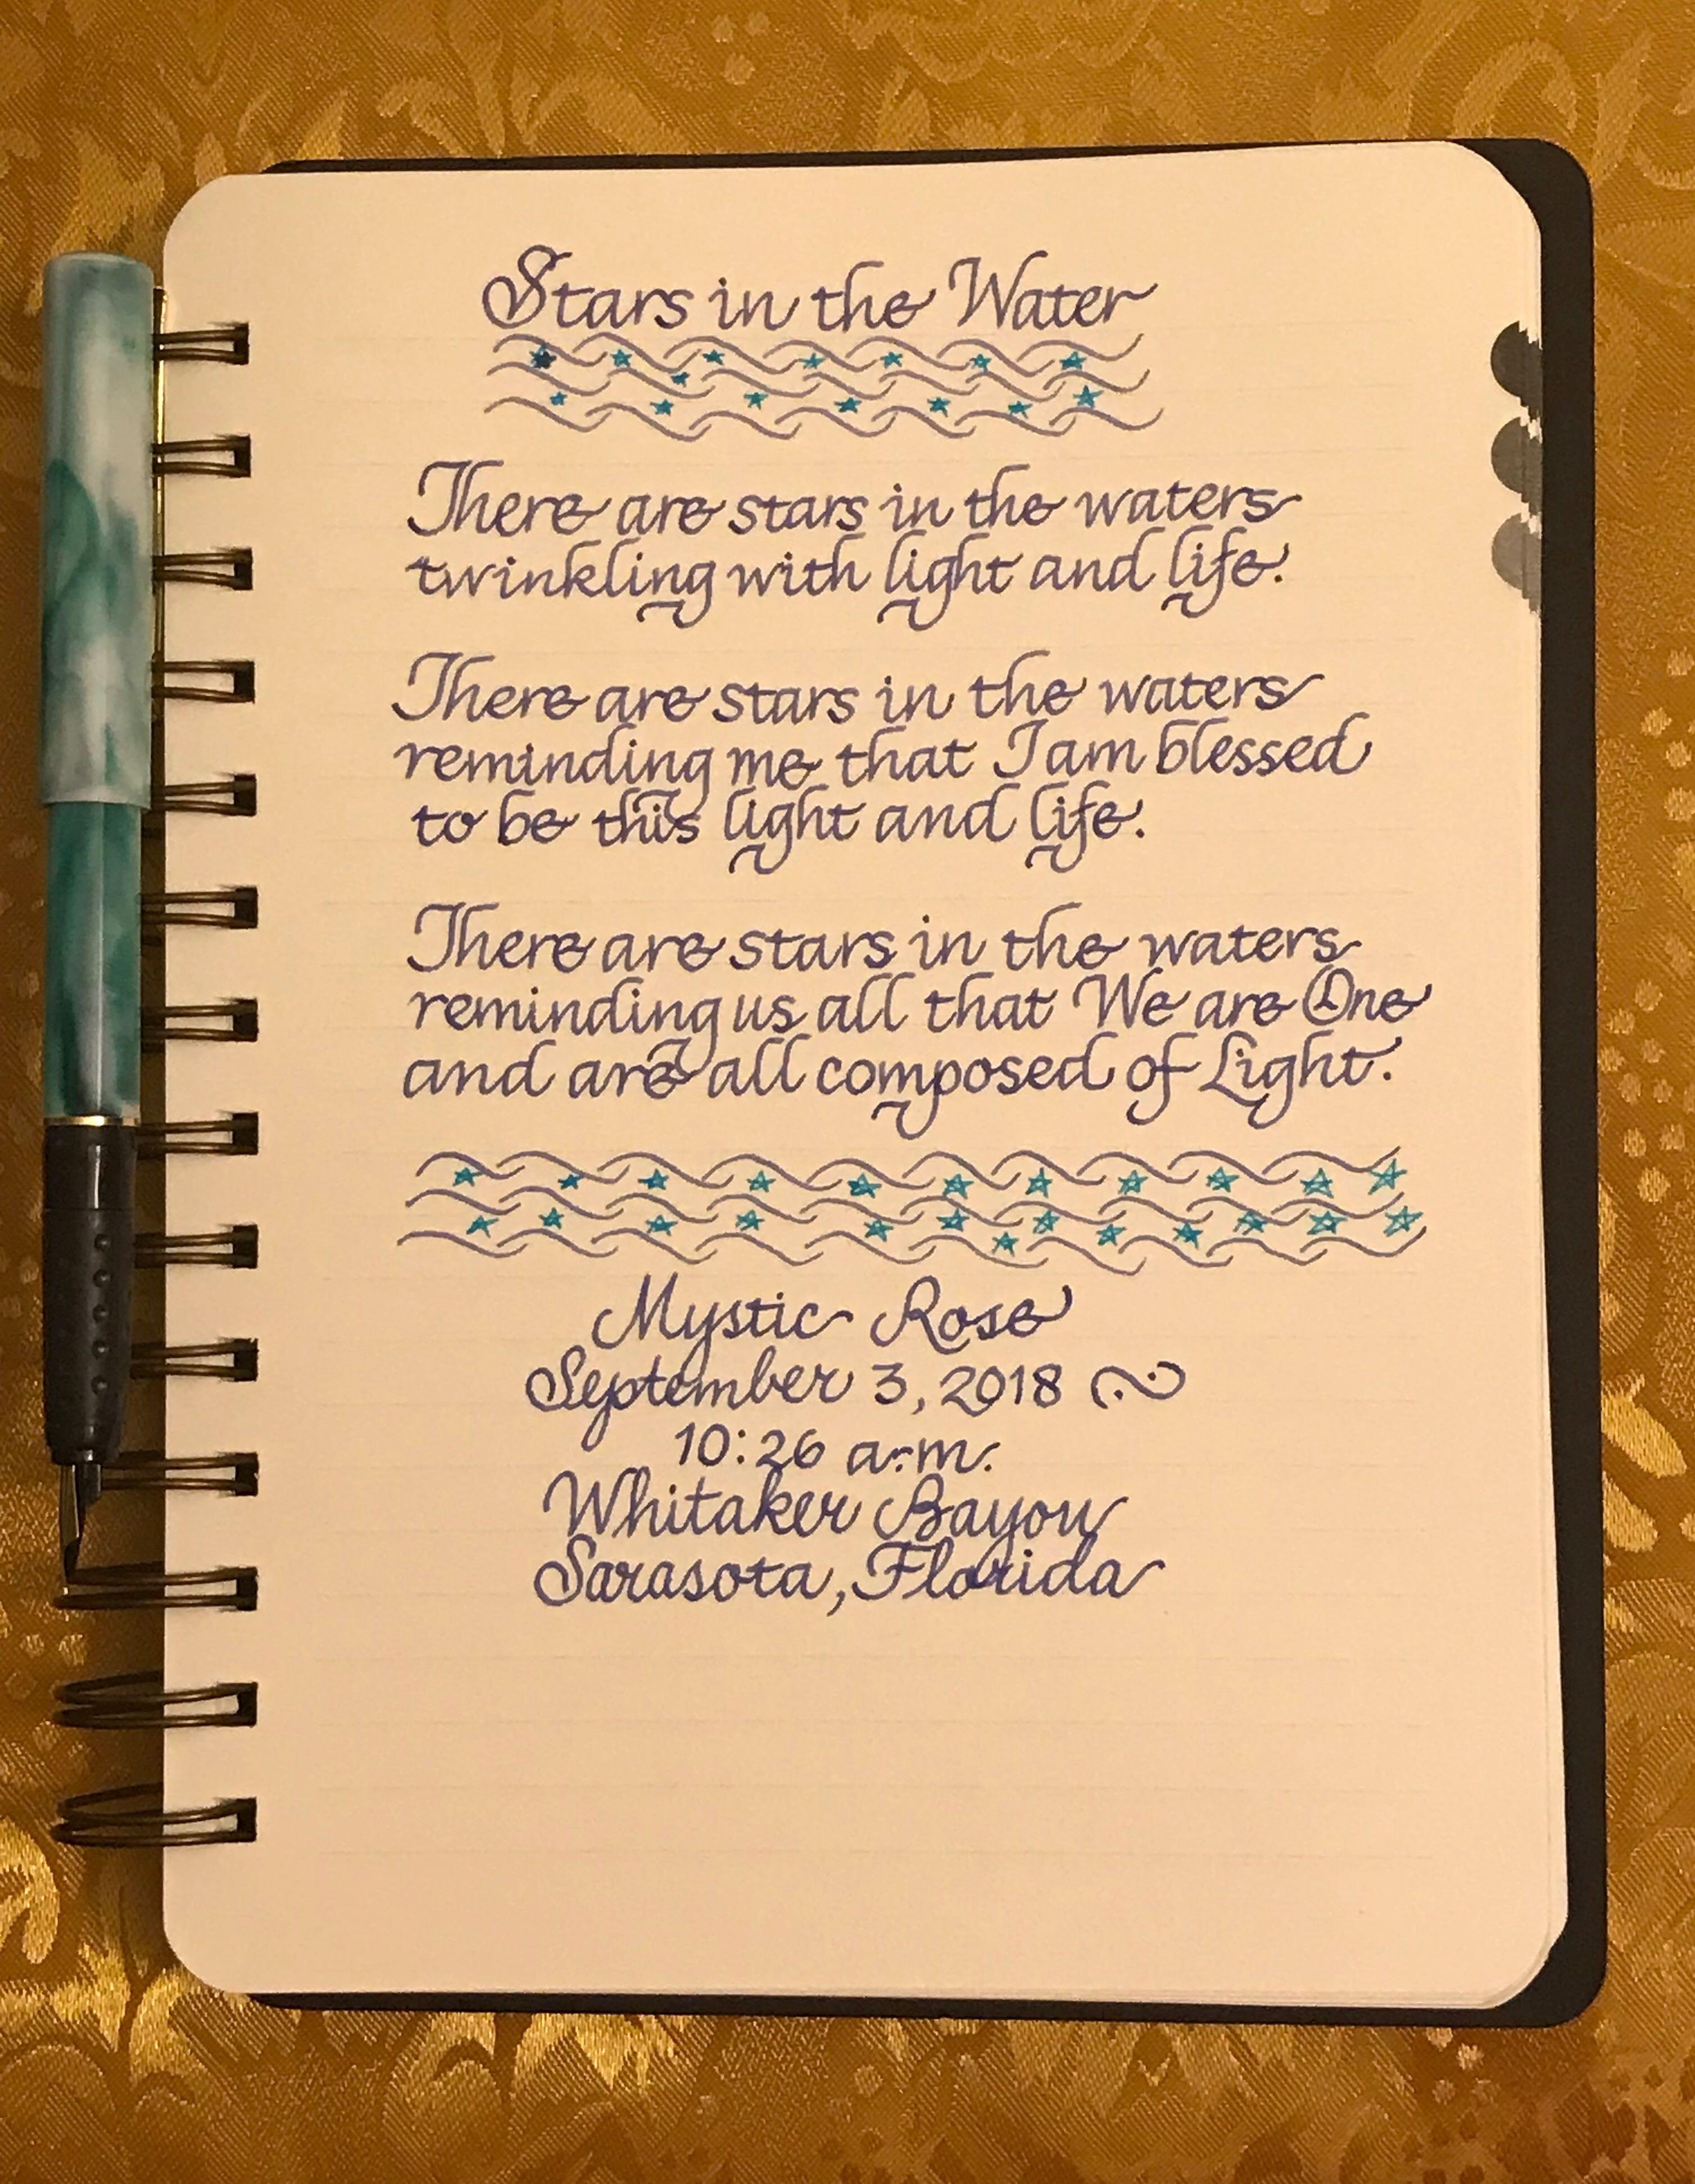 Stars in the Water
There are stars in the waters
twinkling with light and life.
There are stars in the waters
reminding me that I am blessed
to be this light and life.
There are stars in the waters
reminding us all that We are One
and are all composed of Light.
Mystic Rose
September 3, 2018
10:26 a.m.
Whitaker Bayou
Sarasota, Florida